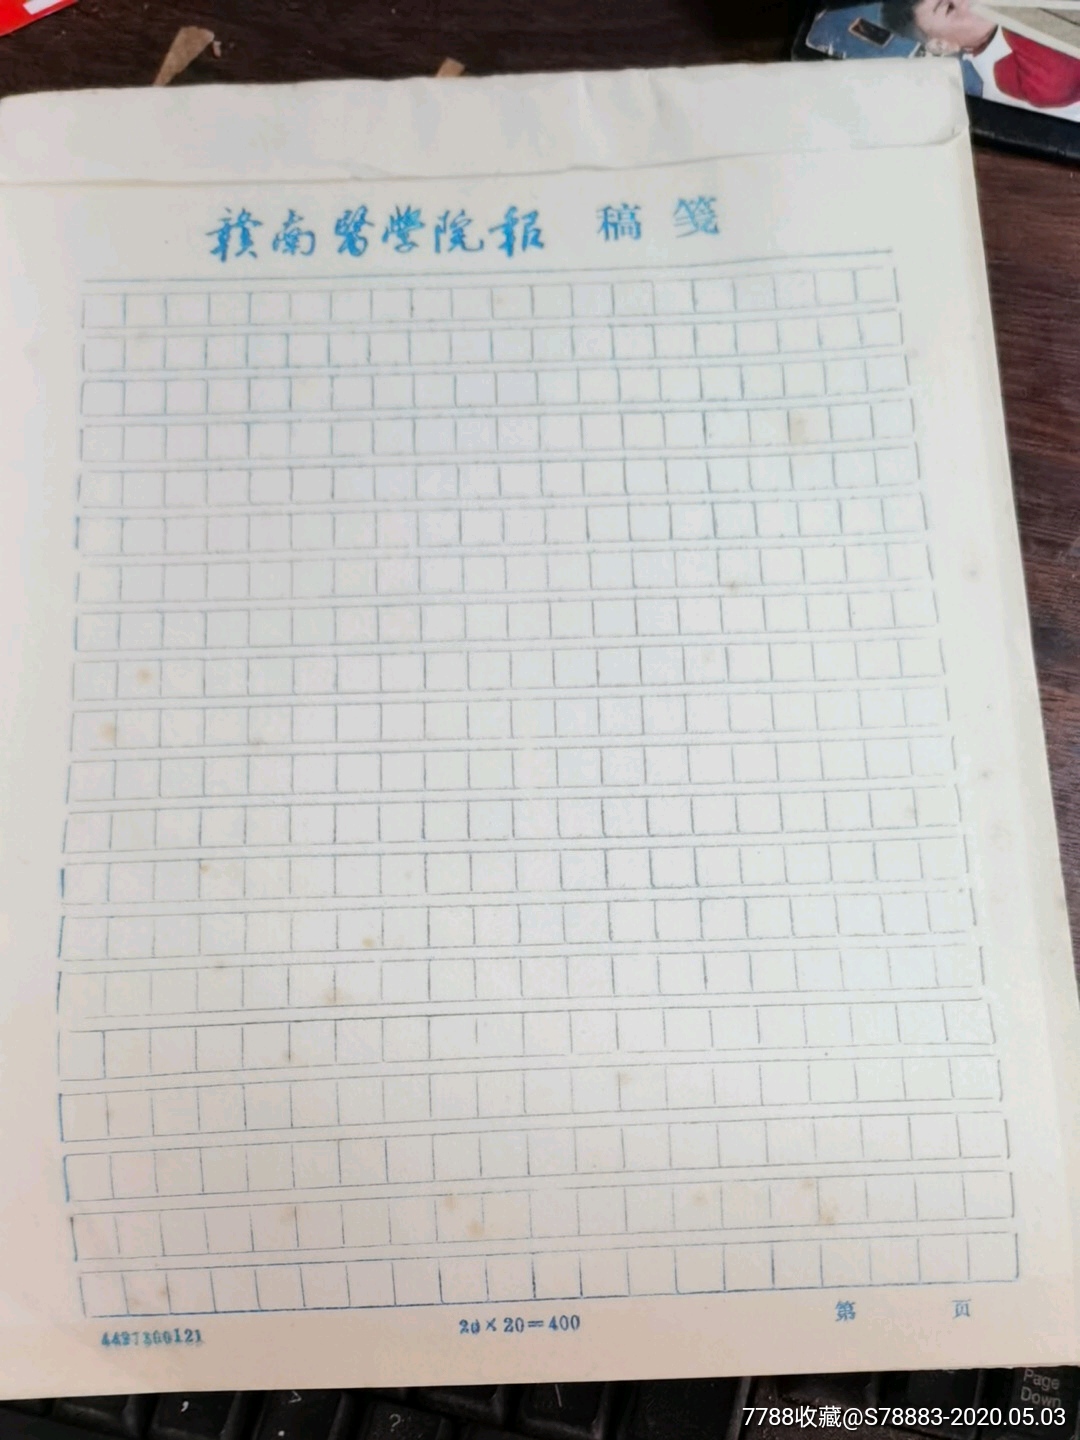 贛南醫學院報 稿笺
20×20=400
第 页
Page
Down
?
7788收藏@S78883-2020.05.03